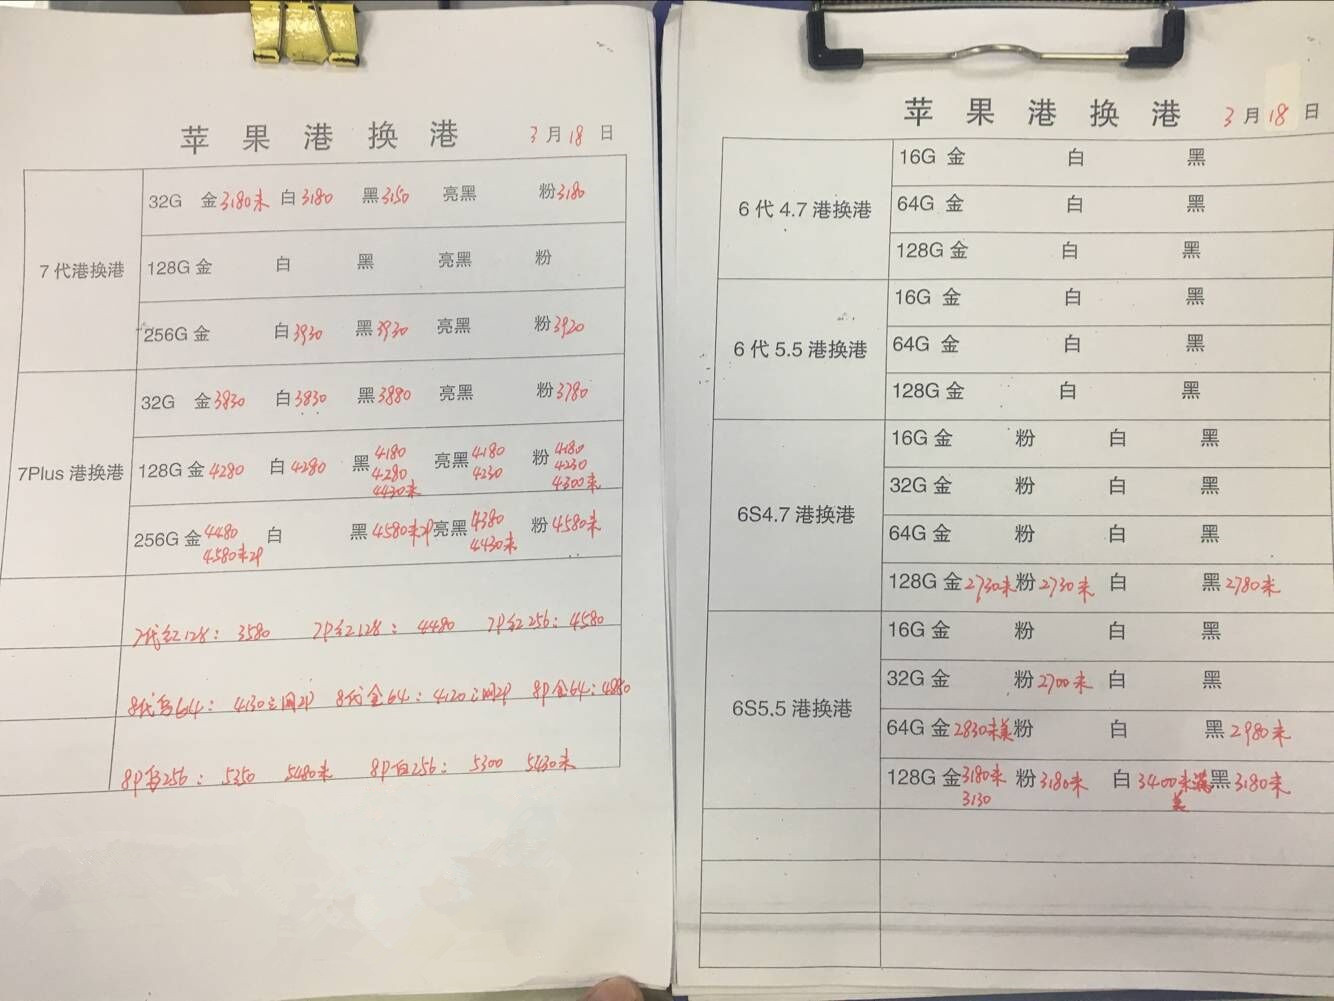 苹果港换港 3月18日
7代港换港
32G 金3180未 白3180 黑3150 亮黑 粉3180
128G金 白 黑 亮黑 粉
256G金 白3930 黑3930 亮黑 粉3920
7Plus港换港
32G 金3830 白3830 黑3880 亮黑 粉3780
128G金4280 白4280 黑4180 4280 4430未 亮黑4180 4230 粉4180 4230 4300未
256G金4480 4580未2P 白 黑4580未2P 亮黑4380 4430未 粉4580未
7代红128：3580 7P红128：4480 7P红256：4580
8代黑64：4130三网2P 8代金64：4120三网2P 8P金64：4880
8P黑256：5350 5480未 8P白256：5300 5430未
苹果港换港 3月18日
6代4.7港换港
16G 金 白 黑
64G 金 白 黑
128G金 白 黑
6代5.5港换港
16G 金 白 黑
64G 金 白 黑
128G金 白 黑
6S4.7港换港
16G金 粉 白 黑
32G金 粉 白 黑
64G金 粉 白 黑
128G金2730未 粉2730未 白 黑2780未
6S5.5港换港
16G金 粉 白 黑
32G金 粉2700未 白 黑
64G金2830未美 粉 白 黑2980未
128G金3180未 3130 粉3180未 白3400未满美 黑3180未